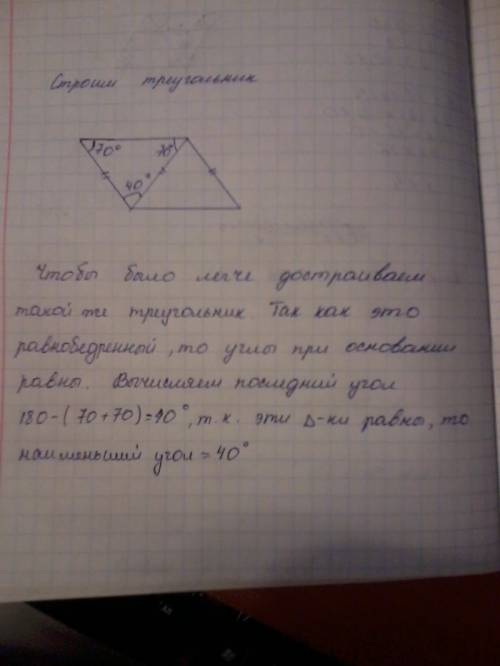 Строим треугольник
70° 70°
40°
Чтобы было легче достраиваем
такой же треугольник. Так как это
равнобедренной, то углы при основании
равны. Вычисляем последний угол
180-(70+70)=40°, т.к. эти Δ-ки равны, то
наименьший угол = 40°